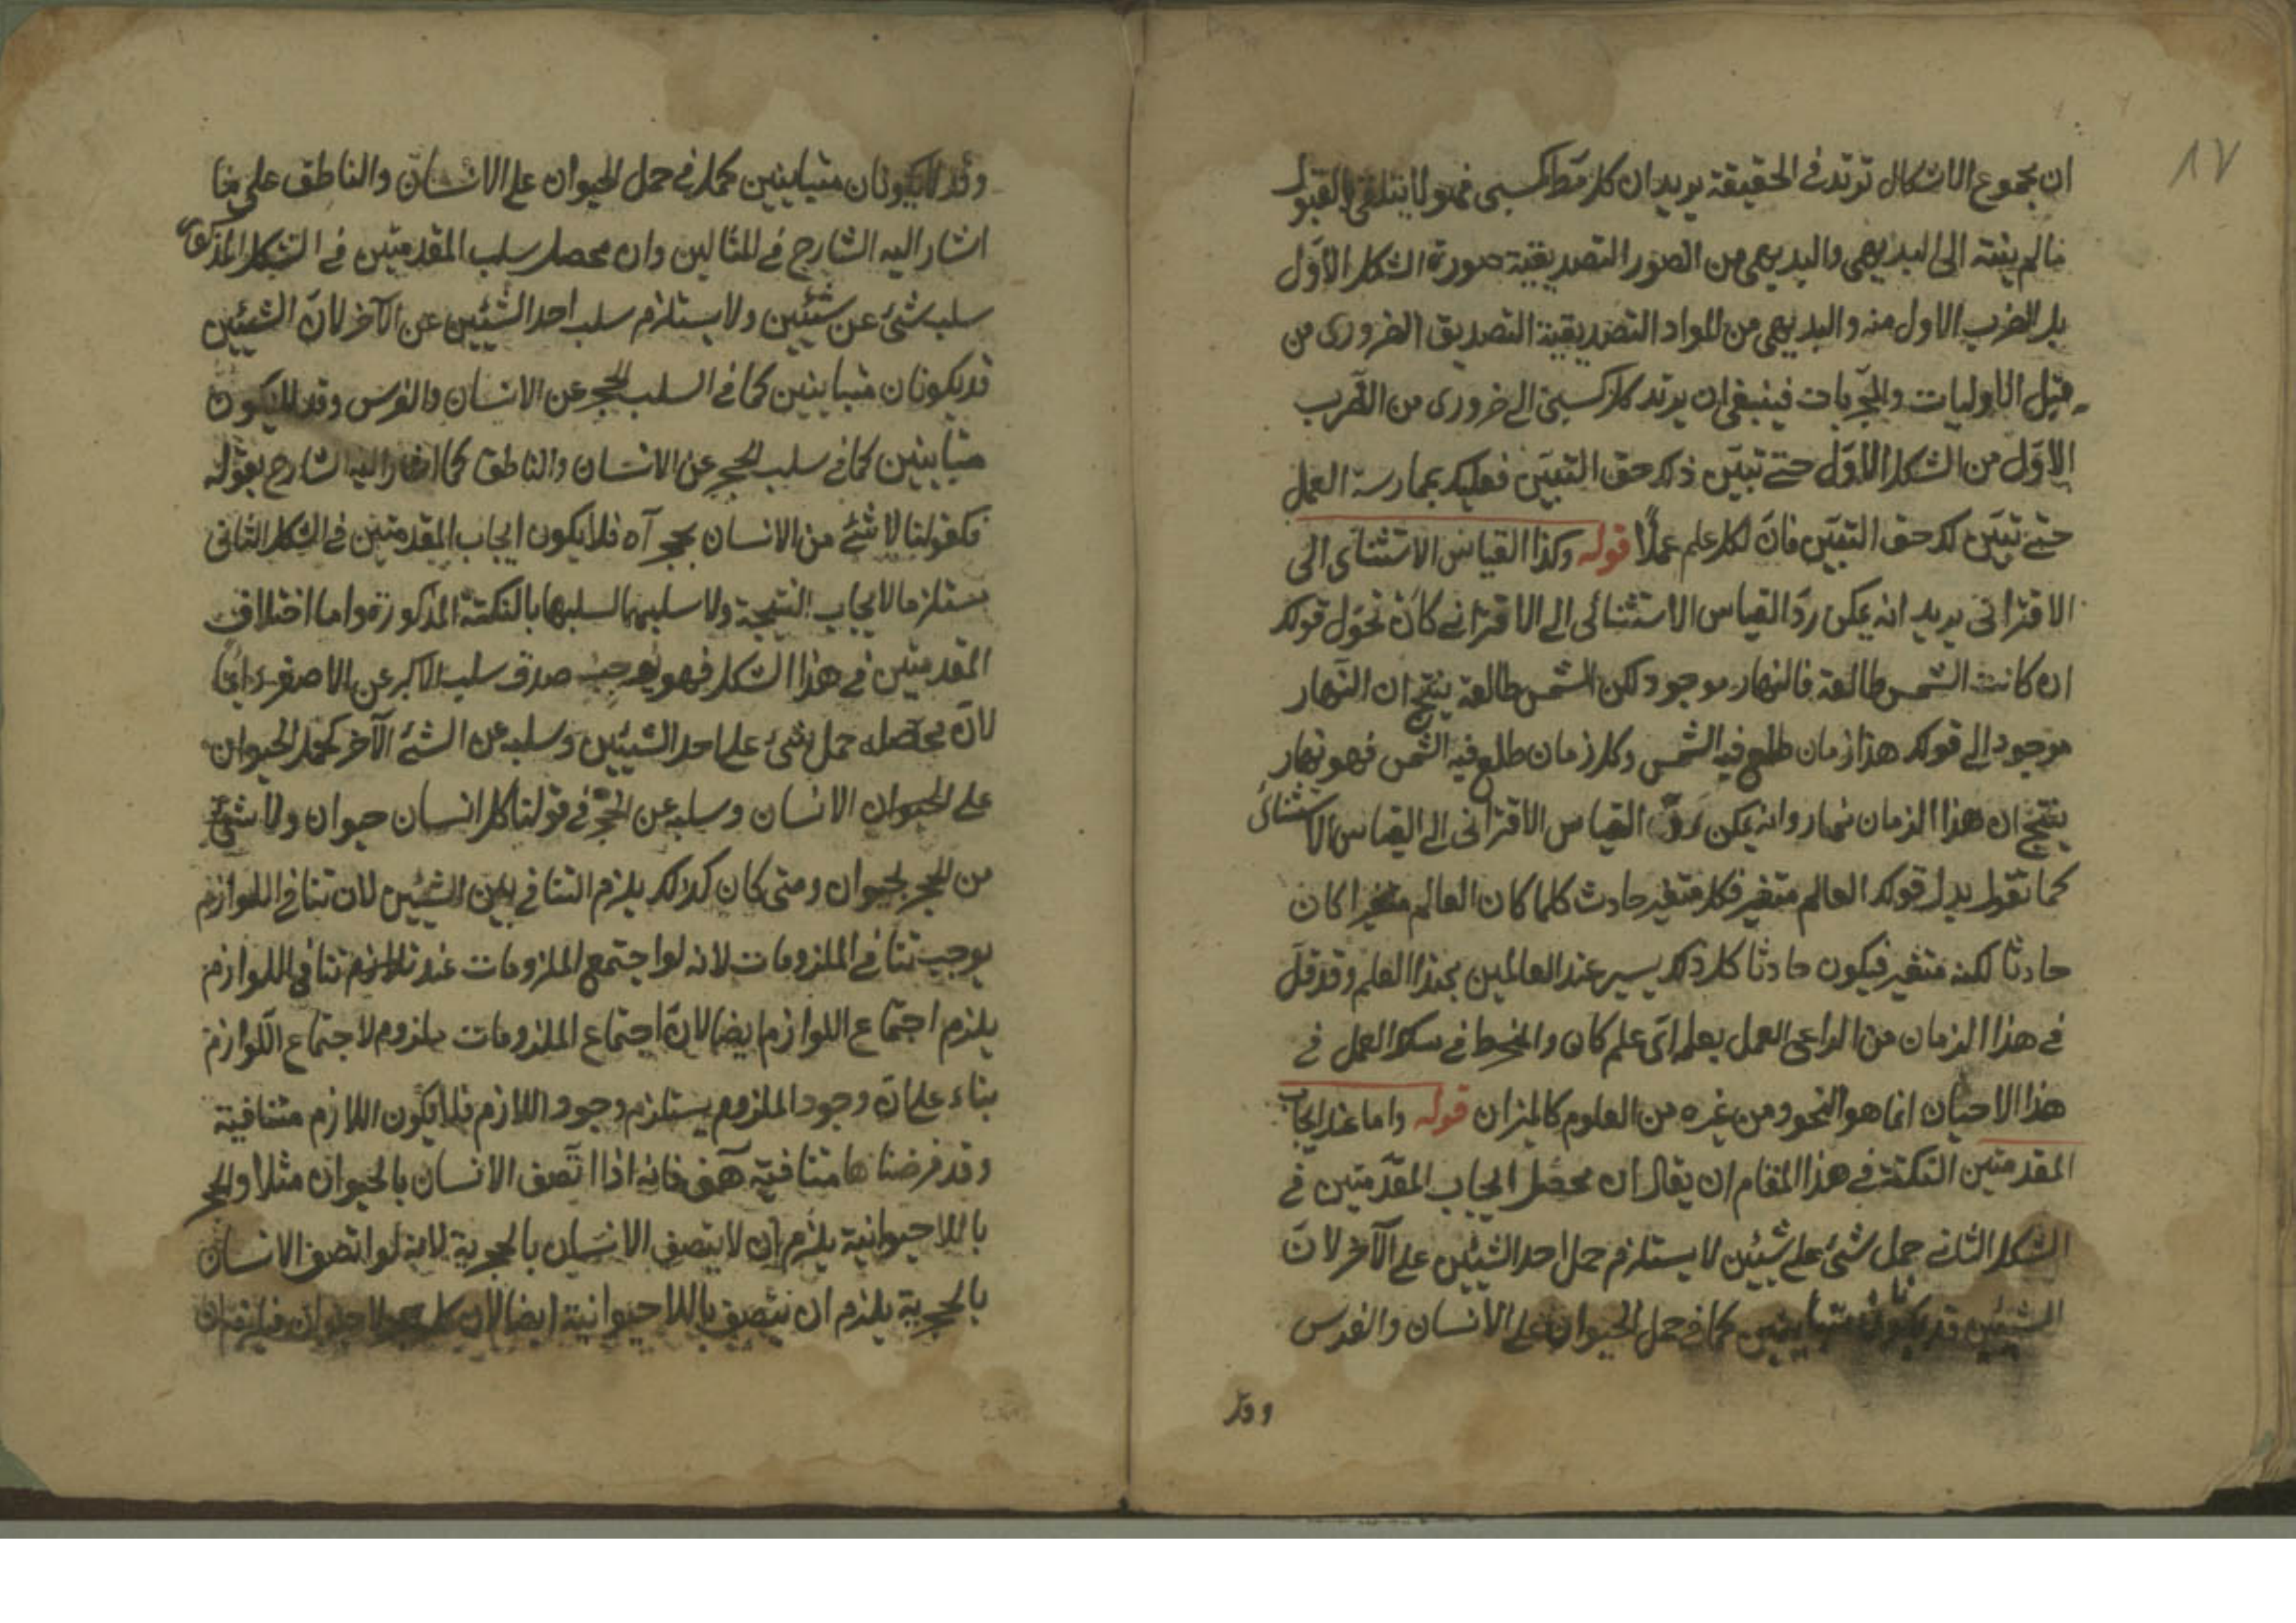 ١٧
ان مجموع الاشكال ترتد في الحقيقة يريد ان كل مط كسبى فهو لا يتلقى بالقبول
ما لم ينته الى البديهى والبديهى من الصور التصديقية صورة الشكل الاوّل
بل الضرب الاول منه والبديهى من المواد التصديقية التصديق الضرورى من
قبل الاوليات والمجرّبات فينبغى ان يرتد كل كسبى الى ضرورى من الضرب
الاوّل من الشكل الاوّل حتى تبيّن ذلك حق التبيّن فعليك بممارسة العمل
حتى تبيّن لك حق التبيّن فانّ لكل علم عملاً قوله وكذا القياس الاستثنائى الى
الاقترانى يريد انه يمكن ردّ القياس الاستثنائى الى الاقترانى كان تحوّل قولك
ان كانت الشمس طالعة فالنهار موجود لكن الشمس طالعة ينتج ان النّهار
موجود الى قولك هذا زمان طلع فيه الشمس وكل زمان طلع فيه الشمس فهو نهار
ينتج ان هذا الزمان نهار وانه يمكن ردّ القياس الاقترانى الى القياس الاستثنائى
كما تقول بدل قولك العالم متغير فكل متغير حادث كلما كان العالم متغيرا كان
حادثا لكنه متغير فيكون حادثا كل ذلك يسير عند العالمين بهذا العلم وقد قلّ
في هذا الزمان من الداعى العمل بعلم اىّ علم كان والمنخرط في سلك العمل في
هذا الاحيان انما هو النحو ومن غيره من العلوم كالميزان قوله واما عند ايجاب
المقدمتين النكتة في هذا المقام ان يقال ان محصّل ايجاب المقدّمتين في
الشكل الثانى حمل شئ على شيئين لا يستلزم حمل احد الشيئين على الآخر لانّ
الشيئين قد يكونان متباينين كما في حمل الحيوان على الانسان والفرس
وقد
وقد لا يكونان متباينين كما في حمل الحيوان على الانسان والناطق على ما
اشار اليه الشارح في المثالين وان محصل سلب المقدمتين في الشكل المذكور
سلب شئ عن شيئين ولا يستلزم سلب احد الشيئين عن الآخر لانّ الشيئين
قد يكونان متباينين كما في السلب الحجر عن الانسان والفرس وقد لا يكون
متباينين كما في سلب الحجر عن الانسان والناطق كما اشار اليه الشارح بقوله
فكقولنا لا شئ من الانسان بحجر آه فلا يكون ايجاب المقدمتين في الشكل الثانى
مستلزما لايجاب النتيجة ولا سلبهما لسلبها بالنكتة المذكورة واما اختلاف
المقدمتين في هذا الشكل فهو يوجب صدق سلب الاكبر عن الاصغر دائما
لانّ محصله حمل شئ على احد الشيئين وسلبه عن الشئ الآخر كحمل الحيوان
على الحيوان الانسان وسلبه عن الحجر في قولنا كل انسان حيوان ولا شئ
من الحجر بحيوان ومتى كان كذلك يلزم التنافى بين الشيئين لان تنافى اللوازم
يوجب تنافى الملزومات لانه لو اجتمع الملزومات عند تلازم تنافى اللوازم
يلزم اجتماع اللوازم ايضا لانّ اجتماع الملزومات ملزوم لاجتماع اللّوازم
بناء على انّ وجود الملزوم يستلزم وجود اللازم فلا يكون اللازم متنافية
وقد فرضناها متنافيّة هف فانه اذا اتّصف الانسان بالحيوان مثلا والحجر
باللاحيوانية يلزم ان لا يتصف الانسان بالحجرية لانه لو اتصف الانسان
بالحجرية يلزم ان يتصف باللاحيوانية ايضا لان كل حجر لا حيوان فيلزم ان